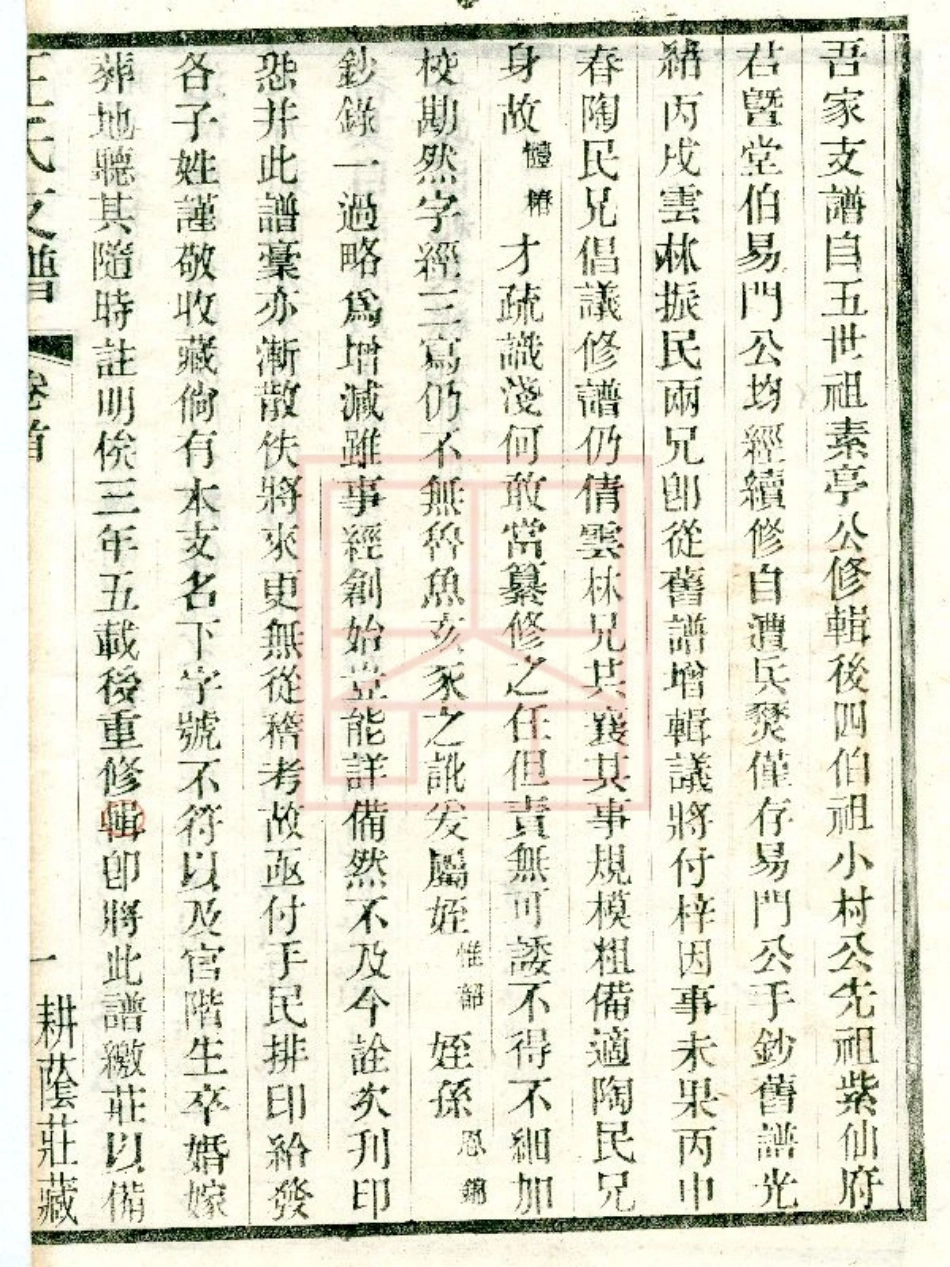 吾家支譜自五世祖素亭公修輯後四伯祖小村公先祖紫仙府
君曁堂伯易門公均經續修自遭兵燹僅存易門公手鈔舊譜光
緒丙戌雲林振民兩兄卽從舊譜增輯議將付梓因事未果丙申
春陶民兄倡議修譜仍倩雲林兄共襄其事規模粗備適陶民兄
身故 才疏識淺何敢當纂修之任但責無可諉不得不細加
校勘然字經三寫仍不無魯魚亥豕之訛爰屬姪惟韶姪孫恩錦
鈔錄一過略爲增減雖事經創始豈能詳備然不及今詮次刊印
恐幷此譜稾亦漸散佚將來更無從稽考故亟付手民排印給發
各子姓謹敬收藏倘有本支名下字號不符以及官階生卒婚嫁
葬地聽其隨時註明俟三年五載後重修輯卽將此譜繳莊以備
王氏支譜 卷首 一 耕蔭莊藏